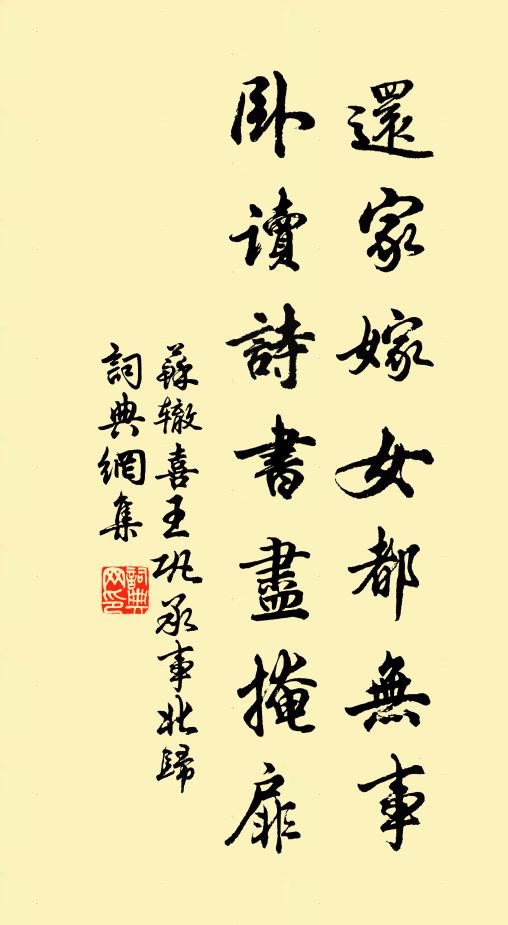 還家嫁女都無事
卧读詩書盡掩扉
蘇辙喜王巩承事北歸
詞典網集
詞典网印